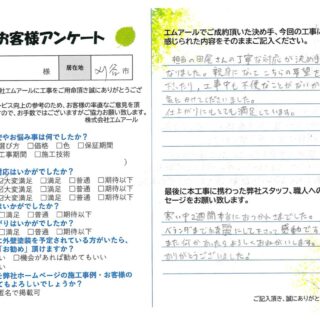 お客様アンケート
様
居住地
刈谷市
社エムアールに工事をご用命頂き誠にありがとうござ
ービス向上の参考のため、お客様の率直なご意見を頂
すので、お手数ではございますがご協力お願い致します。
株式会社エムアール
安やお悩み事は何でしたか?
選び方 □価格 □色 □保証期間
工事期間 □施工技術
)
対応はいかがでしたか?
大変満足 □満足 □普通 □期待以下
大変満足 □満足 □普通 □期待以下
はいかがでしたか?
□満足 □普通 □期待以下
がりはいかがでしたか?
□満足 □普通 □期待以下
に外壁塗装を予定されている方がいたら、
「お勧め」頂けますか?
い □機会があれば勧めてもいい
い
を弊社ホームページの施工事例・お客様の
てもよろしいでしょうか?
匿名で掲載可
エムアールでご成約頂いた決め手、今回の工事に
感じられた内容をそのままご記入ください。
担当の田尾さんの丁寧な対応が決め手
なりました。親身になってこちらの要望を
工事中も不便なことがないか
気にかけてくださいました。
仕上がりにしても満足しています。
最後に本工事に携わった弊社スタッフ、職人への
セージをお願い致します。
寒い中2週間本当におつかれさまでした。
ベランダまでとても綺麗にして下さって感動です
また何かあったらよろしくおねがいします。
ありがとうございました!
ご記入頂き、誠にありがと